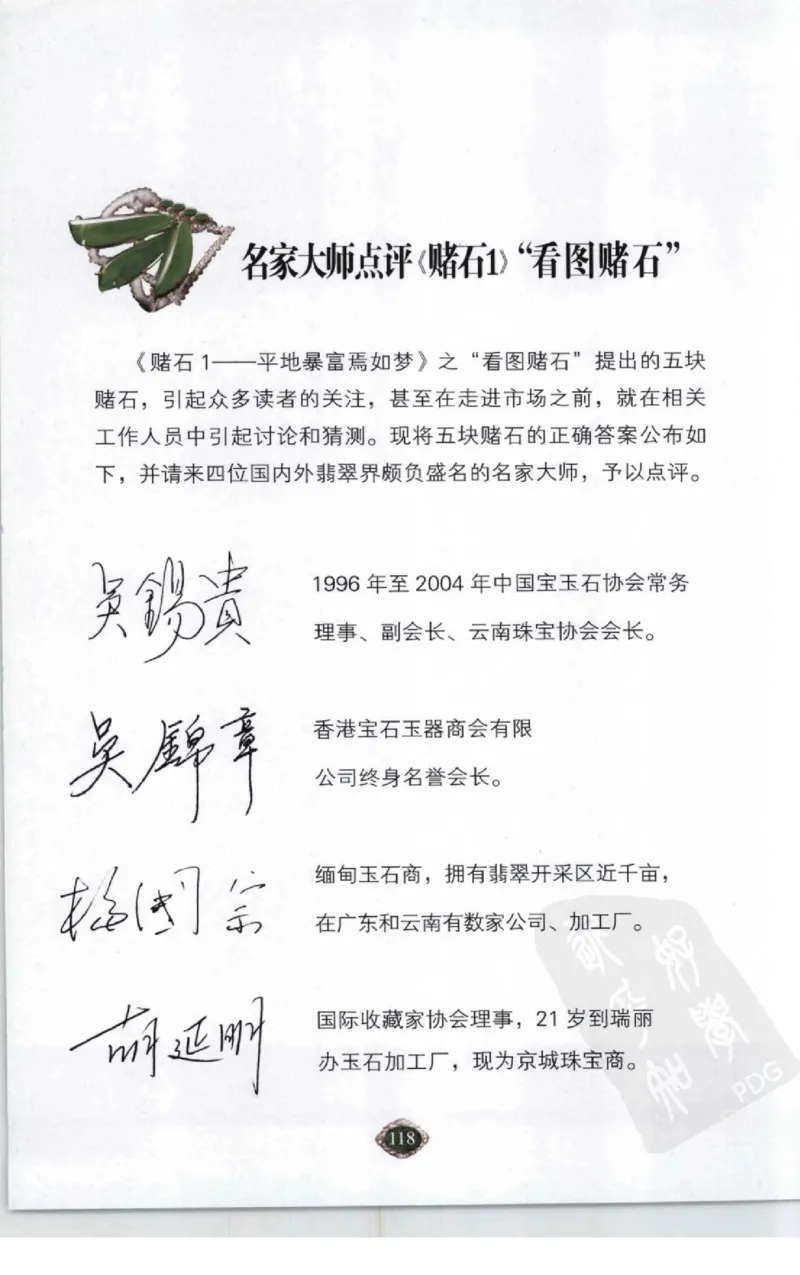 名家大师点评《赌石1》“看图赌石”
《赌石 1——平地暴富焉如梦》之“看图赌石”提出的五块
赌石，引起众多读者的关注，甚至在走进市场之前，就在相关
工作人员中引起讨论和猜测。现将五块赌石的正确答案公布如
下，并请来四位国内外翡翠界颇负盛名的名家大师，予以点评。
吴錫貴
1996 年至 2004 年中国宝玉石协会常务
理事、副会长、云南珠宝协会会长。
吴錦章
香港宝石玉器商会有限
公司终身名誉会长。
杨國宗
缅甸玉石商，拥有翡翠开采区近千亩，
在广东和云南有数家公司、加工厂。
胡延明
国际收藏家协会理事，21 岁到瑞丽
办玉石加工厂，现为京城珠宝商。
PDG
118